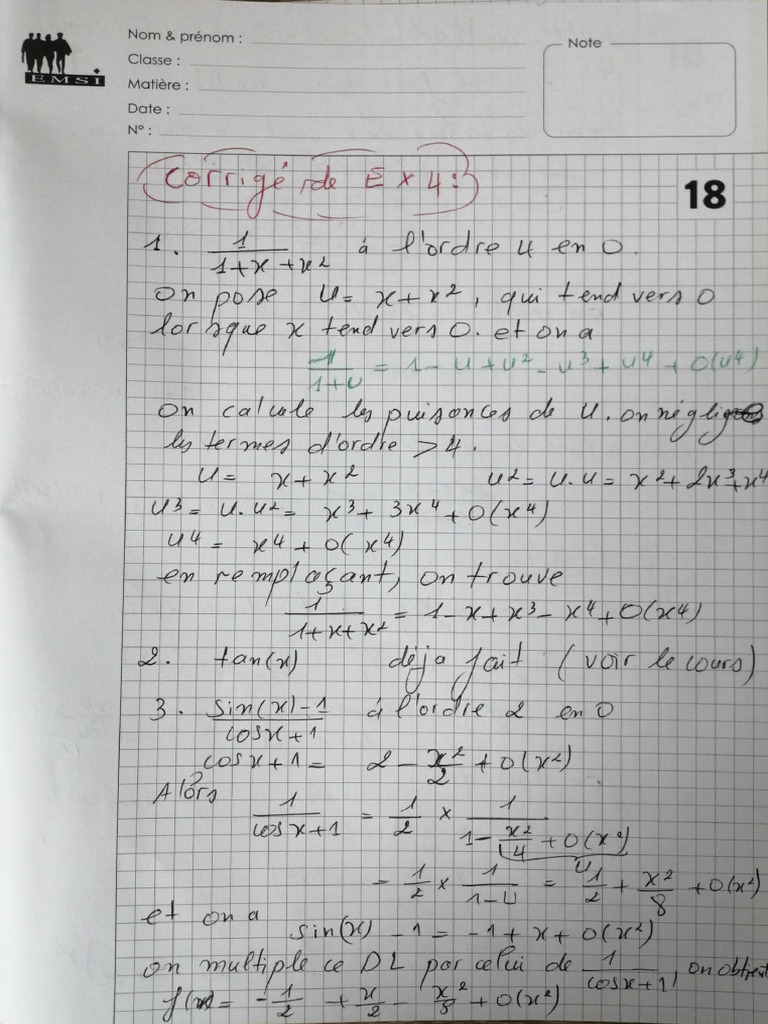 EMSI
Nom & prénom :
Note
Classe :
Matière :
Date :
N° :
Corrigé de Ex 4 :
18
1. 1/(1+x+x²) à l'ordre 4 en 0.
On pose u = x+x², qui tend vers 0
lorsque x tend vers 0. et on a
1/(1+u) = 1 - u + u² - u³ + u⁴ + o(u⁴)
On calcule les puisences de u. on néglige
les termes d'ordre > 4.
u = x+x² u² = u.u = x² + 2x³ + x⁴
u³ = u.u² = x³ + 3x⁴ + o(x⁴)
u⁴ = x⁴ + o(x⁴)
en remplaçant, on trouve
1/(1+x+x²) = 1 - x + x³ - x⁴ + o(x⁴)
2. tan(x) déja fait (voir le cours)
3. (sin(x) - 1)/(cosx+1) à l'ordre 2 en 0
cosx+1 = 2 - x²/2 + o(x²)
Alors
1/(cosx+1) = 1/2 × 1/(1 - x²/4 + o(x²))
u
= 1/2 × 1/(1-u) = 1/2 + x²/8 + o(x²)
et on a
sin(x) - 1 = -1 + x + o(x²)
on multiple ce DL par celui de 1/(cosx+1), on obtient
f(x) = -1/2 + x/2 - x²/8 + o(x²)